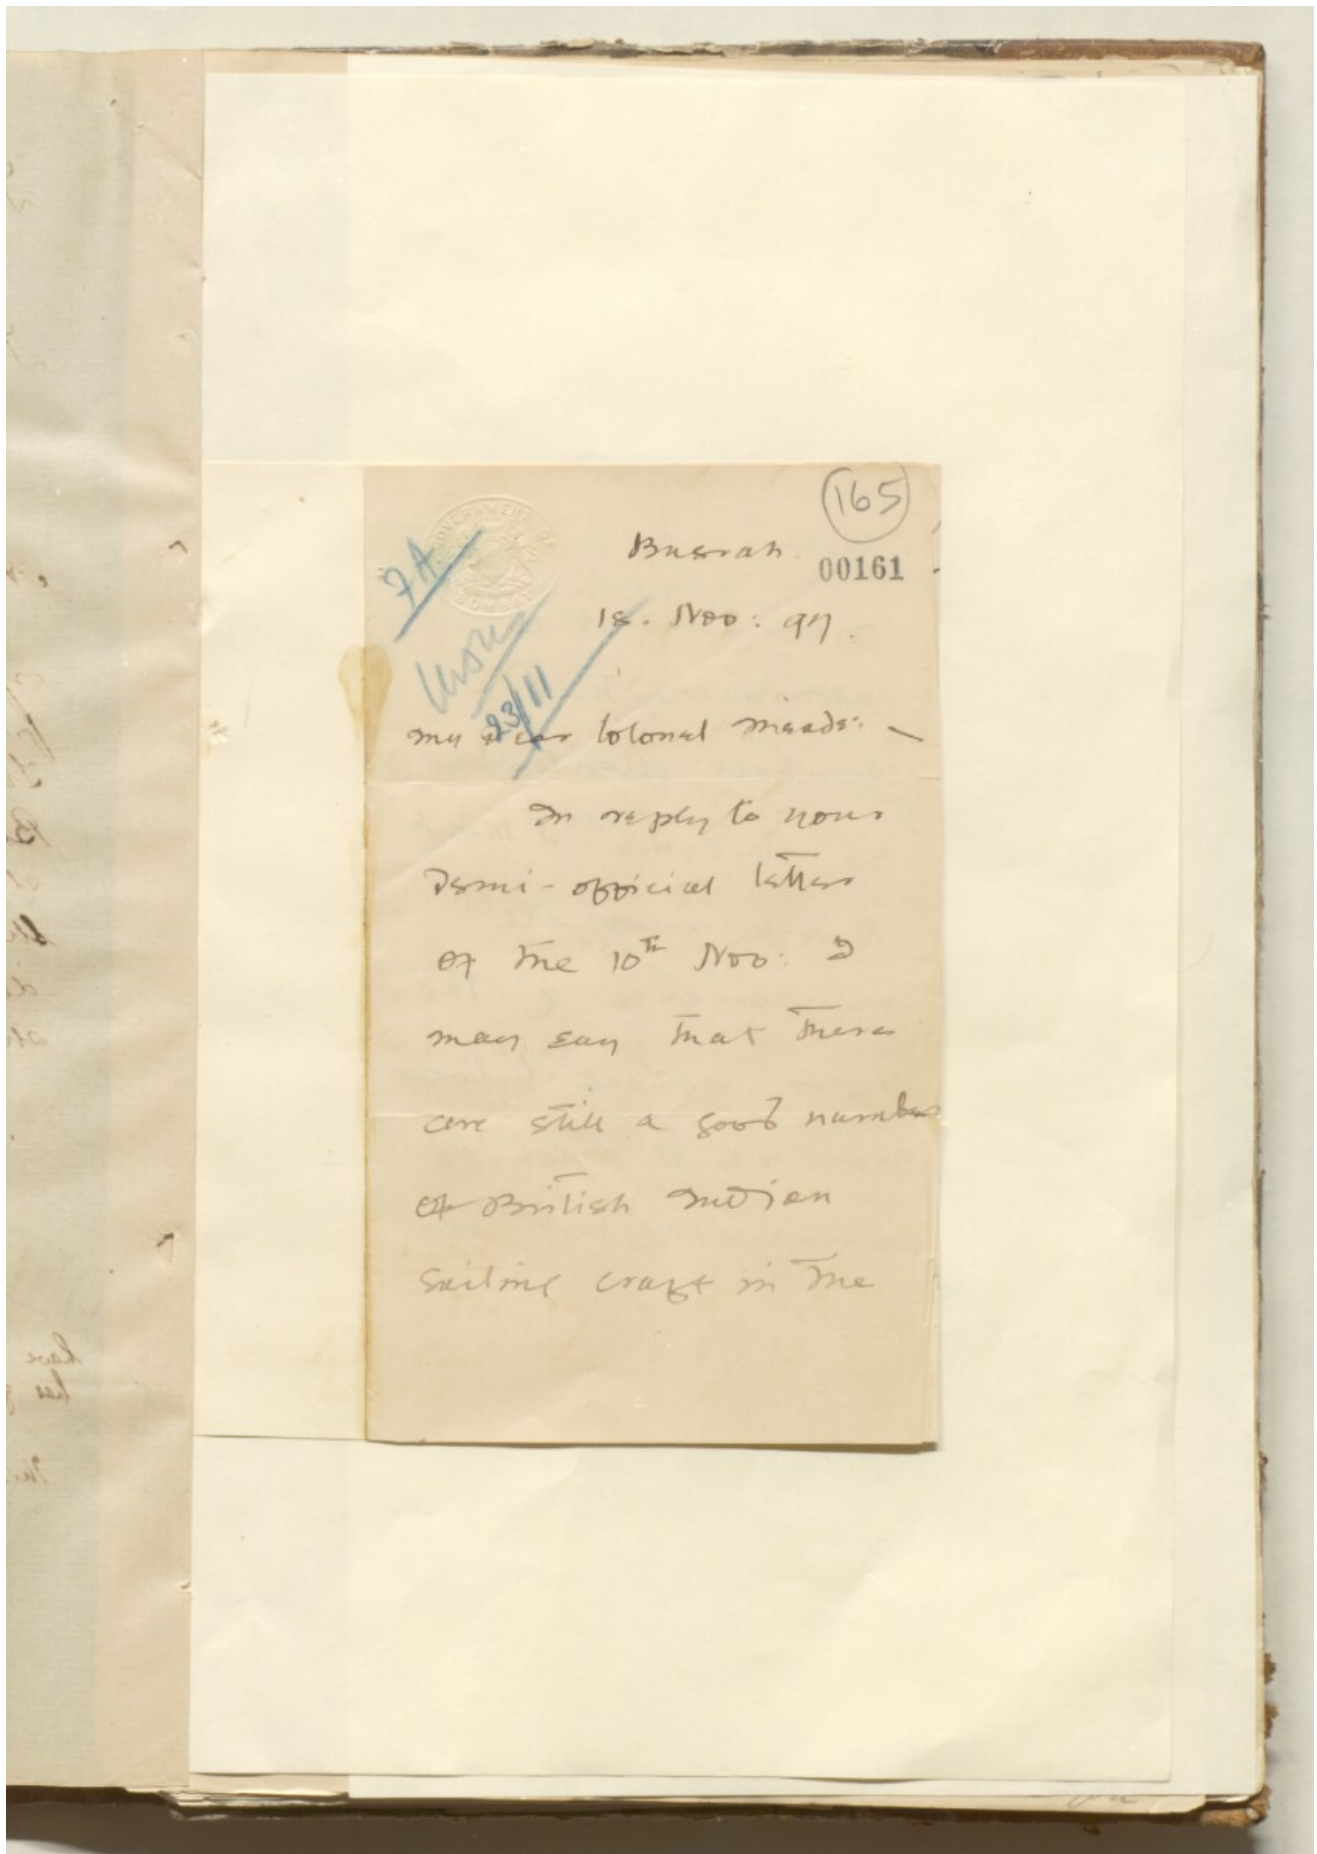 165
GOVERNMENT OF
BOMBAY
Busrah
00161
18. Nov: 97.
7A
23/11
My dear Colonel Meade: -
In reply to your
Demi-official letter
of the 10th Nov: I
may say that there
are still a good number
of British Indian
sailing craft in the
have